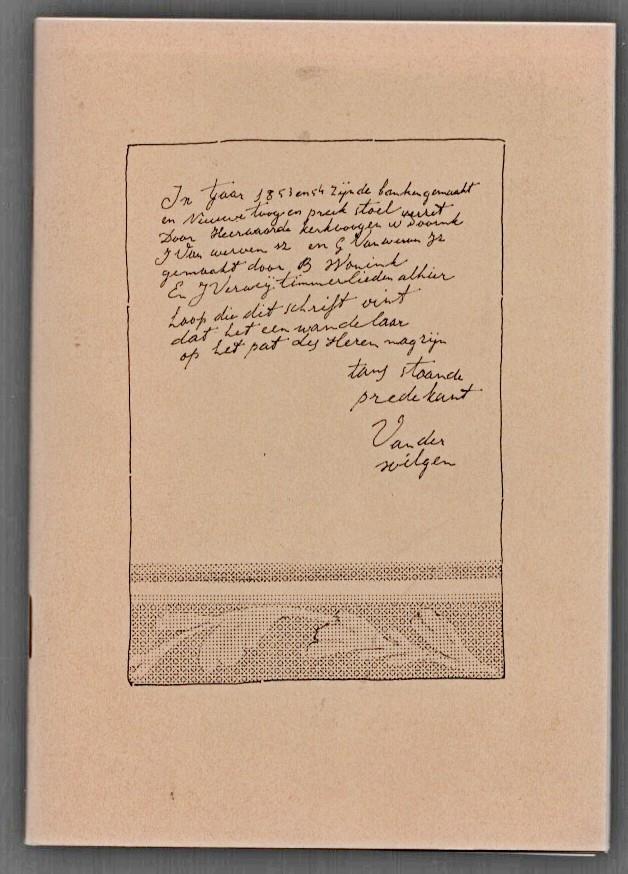 In tjaar 1853 en 54 Zijn de banken gemaakt
en Nieuwe toog en preek stoel verset
Door Heerwaarde kerkvoogen W Doorink
J Van werven sz en G Van werven Jz
gemaakt door B Wonink
En J Verweij timmerlieden alhier
hoop die dit schrift vint
dat het een wandelaar
op het pat des Heren mag zijn
tans staande
predekant
Van der
wilgen